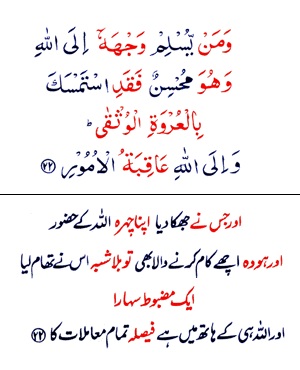 وَمَنْ يُّسْلِمْ وَجْهَهٗۤ اِلَى اللّٰهِ
وَهُوَ مُحْسِنٌ فَقَدِ اسْتَمْسَكَ
بِالْعُرْوَةِ الْوُثْقٰى ؕ
وَ اِلَى اللّٰهِ عَاقِبَةُ الْاُمُوْرِ ﴿۲۲﴾
اور جس نے جھکا دیا اپنا چہرہ اللہ کے حضور
اور ہو وہ اچھے کام کرنے والا بھی تو بلا شبہ اس نے تھام لیا
ایک مضبوط سہارا
اور اللہ ہی کے ہاتھ میں ہے فیصلہ تمام معاملات کا ﴿۲۲﴾